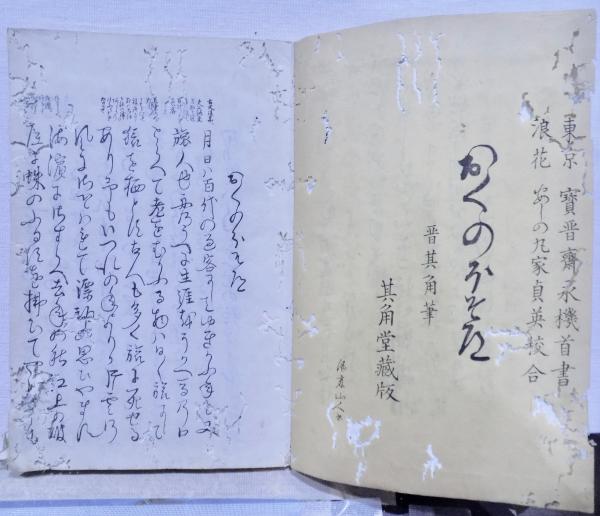 東京 寶晋齋永機首書
浪花 あしの丸家貞英校合
おくのほそ道
晋其角筆
其角堂藏版
おくのほそ道
月日ハ百代の過客にしてゆきかふ年も又
旅人也舟のうへに生涯をうかへ馬の口
とらへて老をむかふる物ハ日々旅にして
旅を栖とす古人も多く旅に死せる
あり予もいつれの年よりか片雲の
風にさそハれて漂泊の思ひやます
海濱にさすらへ去年の秋江上の破
屋に蜘のふる巣を拂ひて